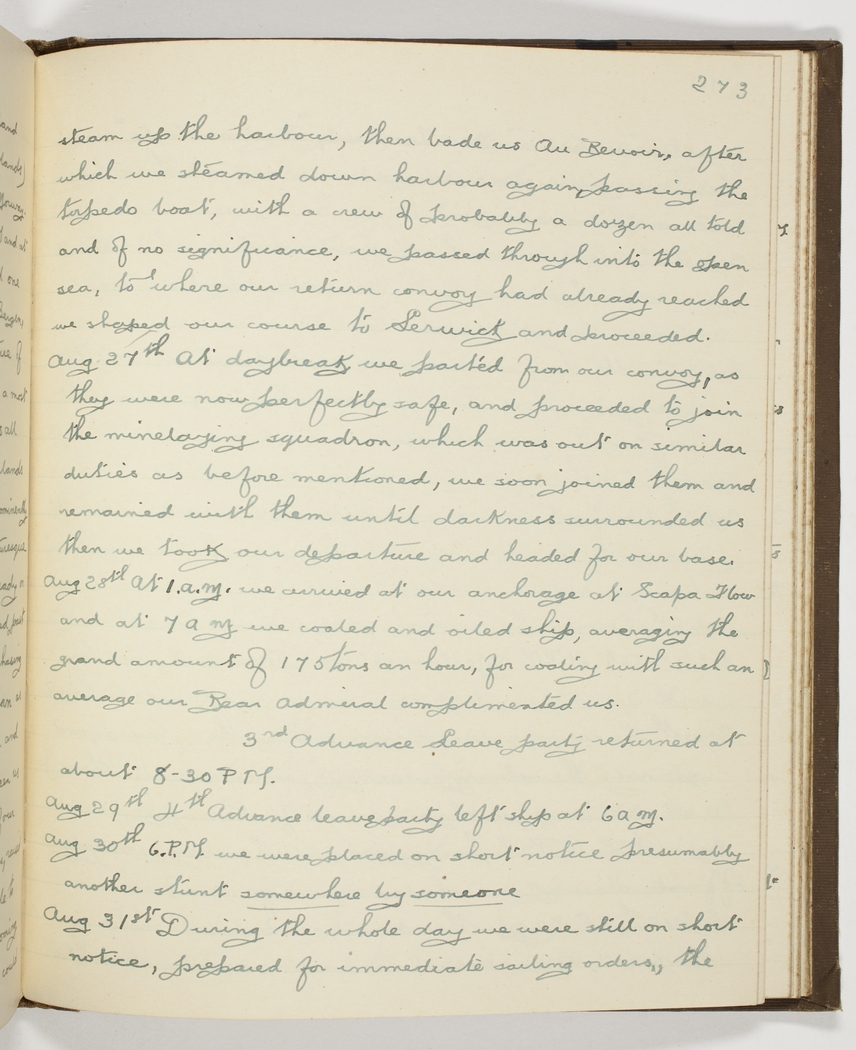 273
steam up the harbour, then bade us Au Revoir, after
which we steamed down harbour again, passing the
torpedo boat, with a crew of probably a dozen all told
and of no significance, we passed through into the open
sea, to where our return convoy had already reached
we shaped our course to Lerwick and proceeded.
Aug 27th At daybreak we parted from our convoy, as
they were now perfectly safe, and proceeded to join
the minelaying squadron, which was out on similar
duties as before mentioned, we soon joined them and
remained with them until darkness surrounded us
then we took our departure and headed for our base.
Aug 28th At 1.a.m. we arrived at our anchorage at Scapa Flow
and at 7 a m we coaled and oiled ship, averaging the
grand amount of 175 tons an hour, for coaling with such an
average our Rear Admiral complimented us.
3rd Advance Leave party returned at
about 8-30 P M.
Aug 29th 4th Advance leave party left ship at 6 a m.
Aug 30th 6.P.M we were placed on short notice presumably
another stunt somewhere by someone
Aug 31st During the whole day we were still on short
notice, prepared for immediate sailing orders,, the